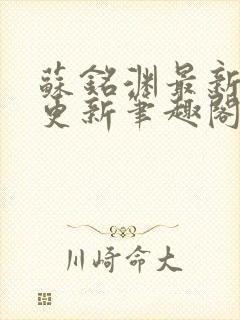 蘇銘淵最新
更新筆趣閣
川崎命大